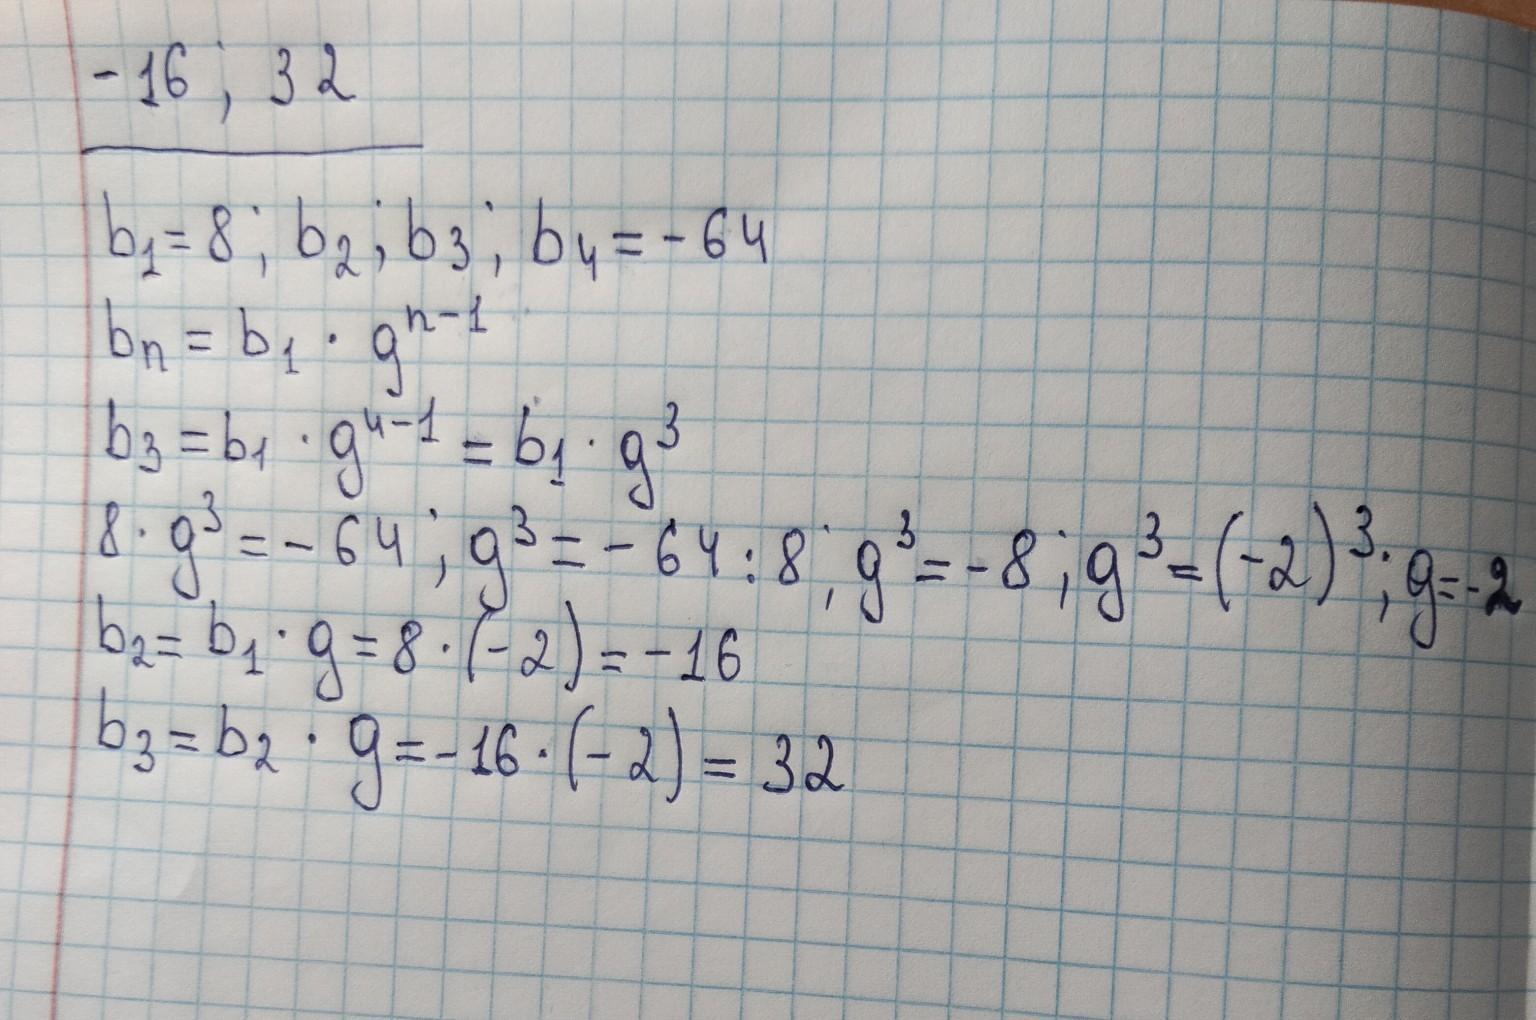 -16; 32
b₁=8; b₂; b₃; b₄=-64
bₙ = b₁ · g^(n-1)
b₃ = b₁ · g^(4-1) = b₁ · g³
8 · g³ = -64; g³ = -64:8; g³ = -8; g³ = (-2)³; g=-2
b₂ = b₁ · g = 8 · (-2) = -16
b₃ = b₂ · g = -16 · (-2) = 32